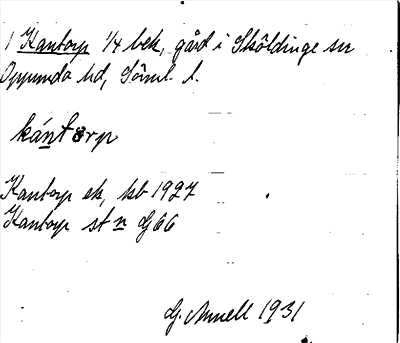 1 Kantorp 1/4 bek, gård i Sköldinge sn
Oppunda hd, Söml l.
kántorp
Kantorp ek, kb 1927
Kantorp st n Gf 66
G. Annell 1931